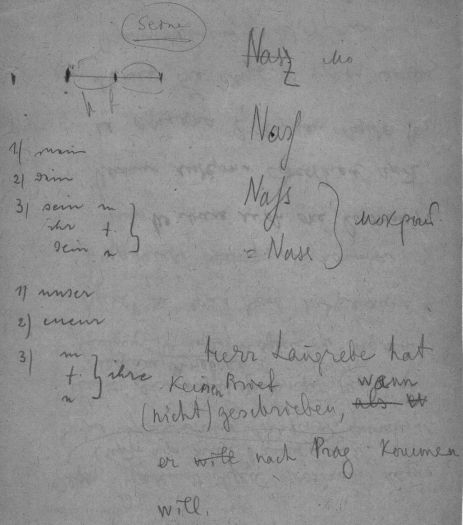 Seine
Nasz
Naß
Nafs
= Nass
мокрый
1) mein
2) dein
3) sein m
ihr f.
sein n
1) unser
2) eueur
3) m
f.
n
ihre
Herr Langrebe hat
Keinen Brief wann
(nicht) geschrieben, als W
er will nach Prag Kommen
will.